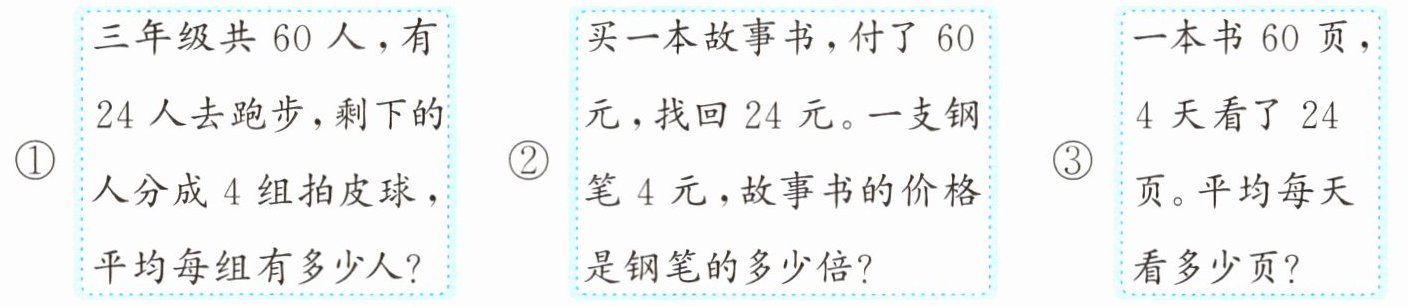 ①
三年级共 60 人，有
24 人去跑步，剩下的
人分成 4 组拍皮球，
平均每组有多少人？
②
买一本故事书，付了 60
元，找回 24 元。一支钢
笔 4 元，故事书的价格
是钢笔的多少倍？
③
一本书 60 页，
4 天看了 24
页。平均每天
看多少页？